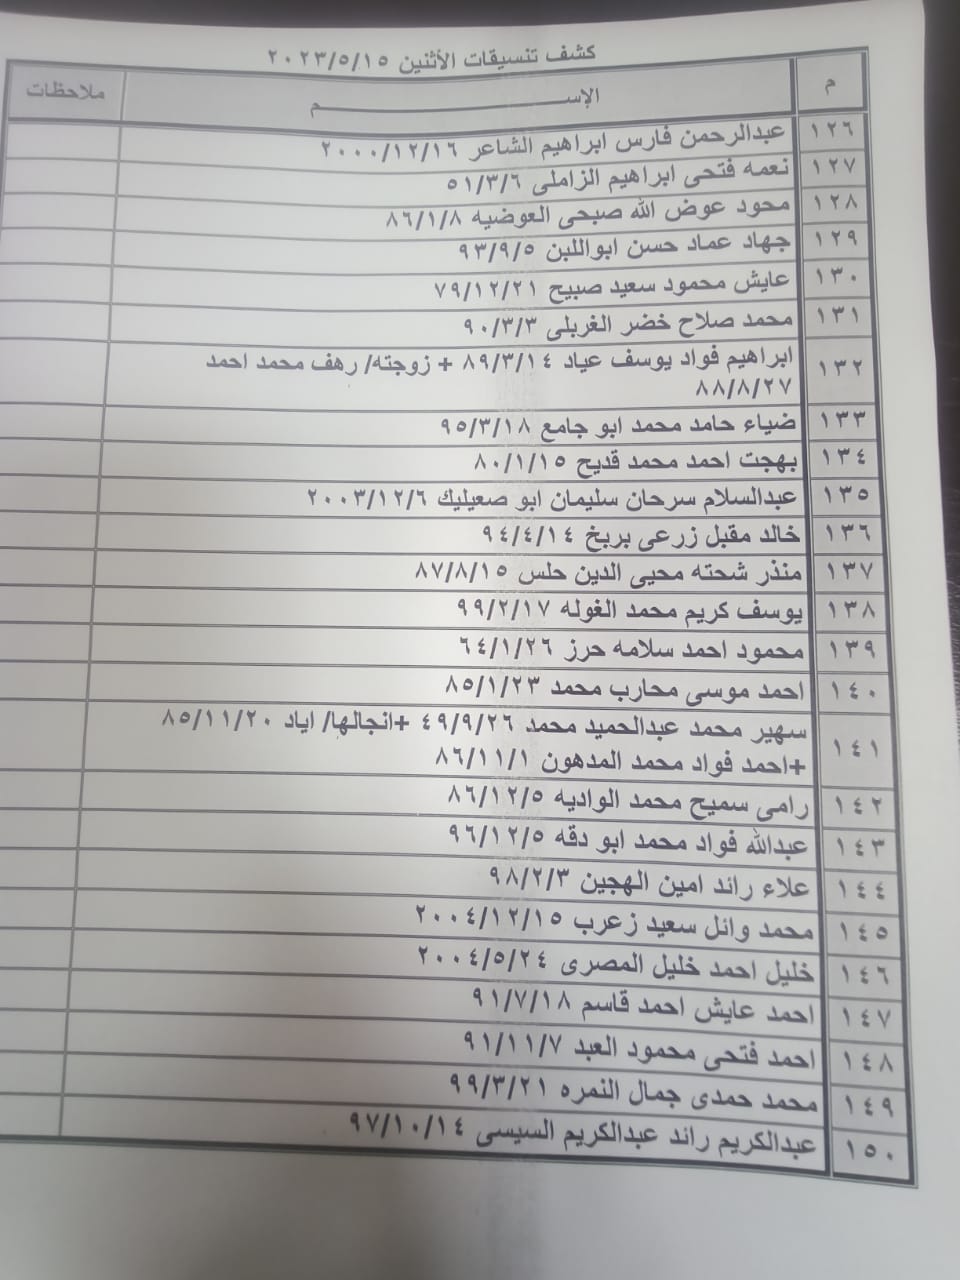 كشف تنسيقات الأثنين ٢٠٢٣/٥/١٥
م الإســـــــــم ملاحظات
١٢٦ عبدالرحمن فارس ابراهيم الشاعر ٢٠٠٠/١٢/١٦
١٢٧ نعمه فتحى ابراهيم الزاملى ٥١/٣/٦
١٢٨ محود عوض الله صبحى العوضيه ٨٦/١/٨
١٢٩ جهاد عماد حسن ابواللبن ٩٣/٩/٥
١٣٠ عايش محمود سعيد صبيح ٧٩/١٢/٢١
١٣١ محمد صلاح خضر الغربلى ٩٠/٣/٣
١٣٢ ابراهيم فواد يوسف عياد ٨٩/٣/١٤ + زوجته/ رهف محمد احمد
٨٨/٨/٢٧
١٣٣ ضياء حامد محمد ابو جامع ٩٥/٣/١٨
١٣٤ بهجت احمد محمد قديح ٨٠/١/١٥
١٣٥ عبدالسلام سرحان سليمان ابو صعيليك ٢٠٠٣/١٢/٦
١٣٦ خالد مقبل زرعى بربخ ٩٤/٤/١٤
١٣٧ منذر شحته محيى الدين حلس ٨٧/٨/١٥
١٣٨ يوسف كريم محمد الغوله ٩٩/٢/١٧
١٣٩ محمود احمد سلامه حرز ٦٤/١/٢٦
١٤٠ احمد موسى محارب محمد ٨٥/١/٢٣
١٤١ سهير محمد عبدالحميد محمد ٤٩/٩/٢٦ +انجالها/ اياد ٨٥/١١/٢٠
+احمد فواد محمد المدهون ٨٦/١١/١
١٤٢ رامى سميح محمد الواديه ٨٦/١٢/٥
١٤٣ عبدالله فواد محمد ابو دقه ٩٦/١٢/٥
١٤٤ علاء رائد امين الهجين ٩٨/٢/٣
١٤٥ محمد وائل سعيد زعرب ٢٠٠٤/١٢/١٥
١٤٦ خليل احمد خليل المصرى ٢٠٠٤/٥/٢٤
١٤٧ احمد عايش احمد قاسم ٩١/٧/١٨
١٤٨ احمد فتحى محمود العبد ٩١/١١/٧
١٤٩ محمد حمدى جمال النمره ٩٩/٣/٢١
١٥٠ عبدالكريم رائد عبدالكريم السيسى ٩٧/١٠/١٤